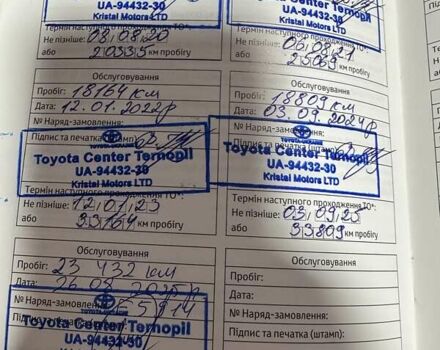 Toyota Center Ternopil
UA-94432-30
Kristal Motors LTD
Не пізніше: 08.08.20
або 20335 км пробігу
Обслуговування
Пробіг: 18164 км
Дата: 12.01.2022р
№ Наряд-замовлення:
Підпис та печатка
Toyota Center Ternopil
UA-94432-30
Kristal Motors LTD
Термін наступного проходження ТО*:
Не пізніше: 12,01,23
або 33164 км пробігу
Обслуговування
Пробіг: 23 432 км
Дата: 26.08
№ Наряд-замовлення:
Підпис та печатка
Toyota Center Ternopil
UA-94432-30
UA-94432-30
Kristal Motors LTD
Термін наступного проходження ТО*:
Не пізніше: 06,08,21
або км пробігу
Обслуговування
Пробіг: 18809 км
Дата: 03.09.2024р
№ Наряд-замовлення:
Підпис та печатка (штамп):
Toyota Center Ternopil
UA-94432-30
Kristal Motors LTD
Термін наступного проходження ТО*:
Не пізніше: 03,09,25
або 33809 км пробігу
Обслуговування
Пробіг:
Дата:
№ Наряд-замовлення:
Підпис та печатка (штамп):